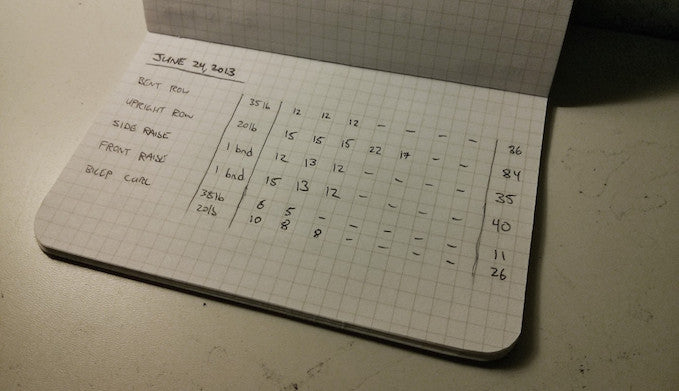 JUNE 24, 2013
BENT ROW 35lb 12 12 12 – – – – 36
UPRIGHT ROW 20lb 15 15 15 22 17 – – 84
SIDE RAISE 1 bnd 12 13 12 – – – – 35
FRONT RAISE 1 bnd 15 13 12 – – – – 40
BICEP CURL 35lb 6 5 – – – – – 11
20lb 10 8 8 – – – – 26